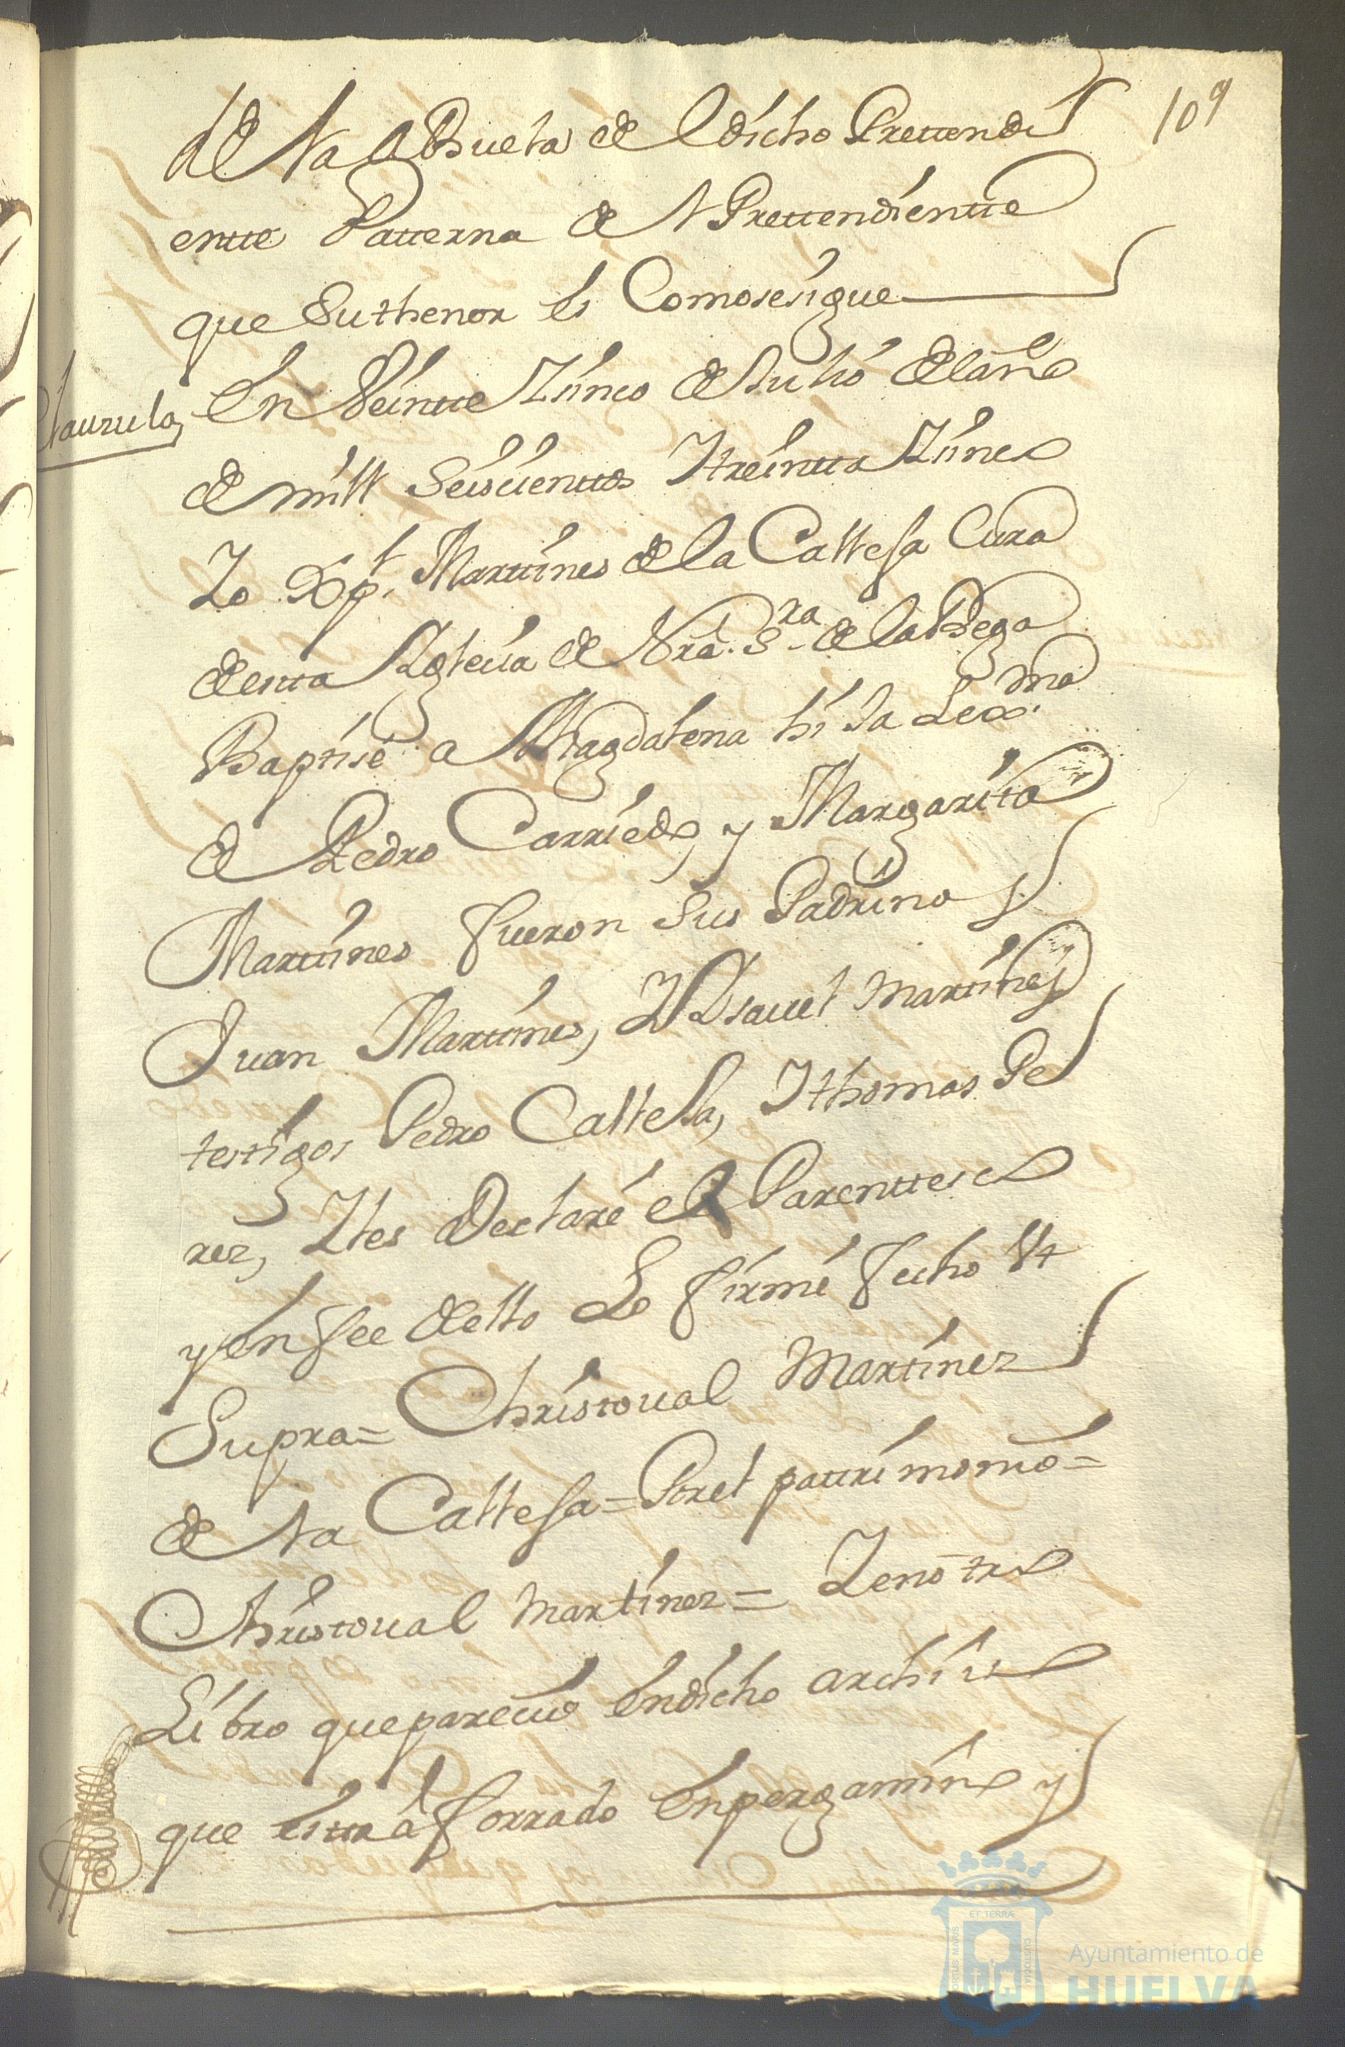 109
de la Abuela de el dicho Prettendi
entte Patterna de el Prettendientte
que Su thenor es Comosesigue
Clausula
En Veintte Zinco de Julio del año
de mill Seiscienttos Y treintta Zinco
Yo Xptl. Marttines de la Callesa Cura
de estta Yglecia de Nra. Sra. de la Bega
Baptisé a Magdalena hija Lexma.
de Pedro Carriedo, y Margaritta
Marttines fueron Sus Padrinos
Juan Marttines, Y Ysavel Martines
testigos Pedro Callesa, Y thomas Pe
rez, Y les Declaré el Parenttesco
y en fee dello Lo firmé fecho Ut
Supra = Christoual Martinez
de la Callesa = Por el pattrimonio =
Christoual Martinez = Y en otro
Libro que parecio En dicho archivo
que está forrado En pergamino y
Ayuntamiento de
HUELVA